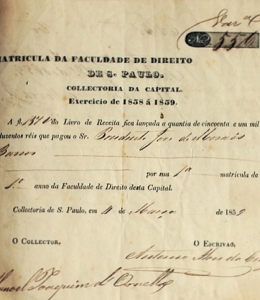 Nº 556
MATRICULA DA FACULDADE DE DIREITO
DE S. PAULO.
COLLECTORIA DA CAPITAL.
Exercicio de 1858 á 1859.
A fl. do Livro de Receita fica lançada a quantia de cincoenta e um mil
duzentos réis que pagou o Sr. Prudente José de Moraes
Barros
por sua 1ª matricula do
1º anno da Faculdade de Direito desta Capital.
Collectoria de S. Paulo, em 4 de Março de 1859
O COLLECTOR. O ESCRIVÃO,
Antonio
Joaquim d'Ornellas